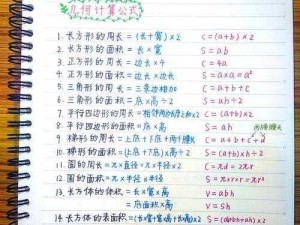 几何计算公式
1. 长方形的周长=(长+宽)×2 C=(a+b)×2
2. 长方形的面积=长×宽 S=ab
3. 正方形的周长=边长×4 C=4a
4. 正方形的面积=边长×边长 S=a×a=a²
5. 三角形的周长=三条边相加 C=
6. 三角形的面积=底×高÷2 S=ah÷2
7. 平行四边形的周长=相邻两边的和×2 C=(a+b)×2
8. 平行四边形的面积=底×高 S=ah
9. 梯形的周长=上底+下底+两个腰长 C=a+b+c+d
10. 梯形的面积=(上底+下底)×高÷2 S=(a+b)×h÷2
11. 圆的周长=π×直径=π×半径×2 C=πd=2πr
12. 圆的面积=π×半径×半径 S=π×r×r=πr²
13. 长方体的体积=长×宽×高 V=abh
=底面积×高 V=sh
14. 长方体的表面积=(长×宽+长×高+宽×高)×2 S=(ab+bh+ah)×2